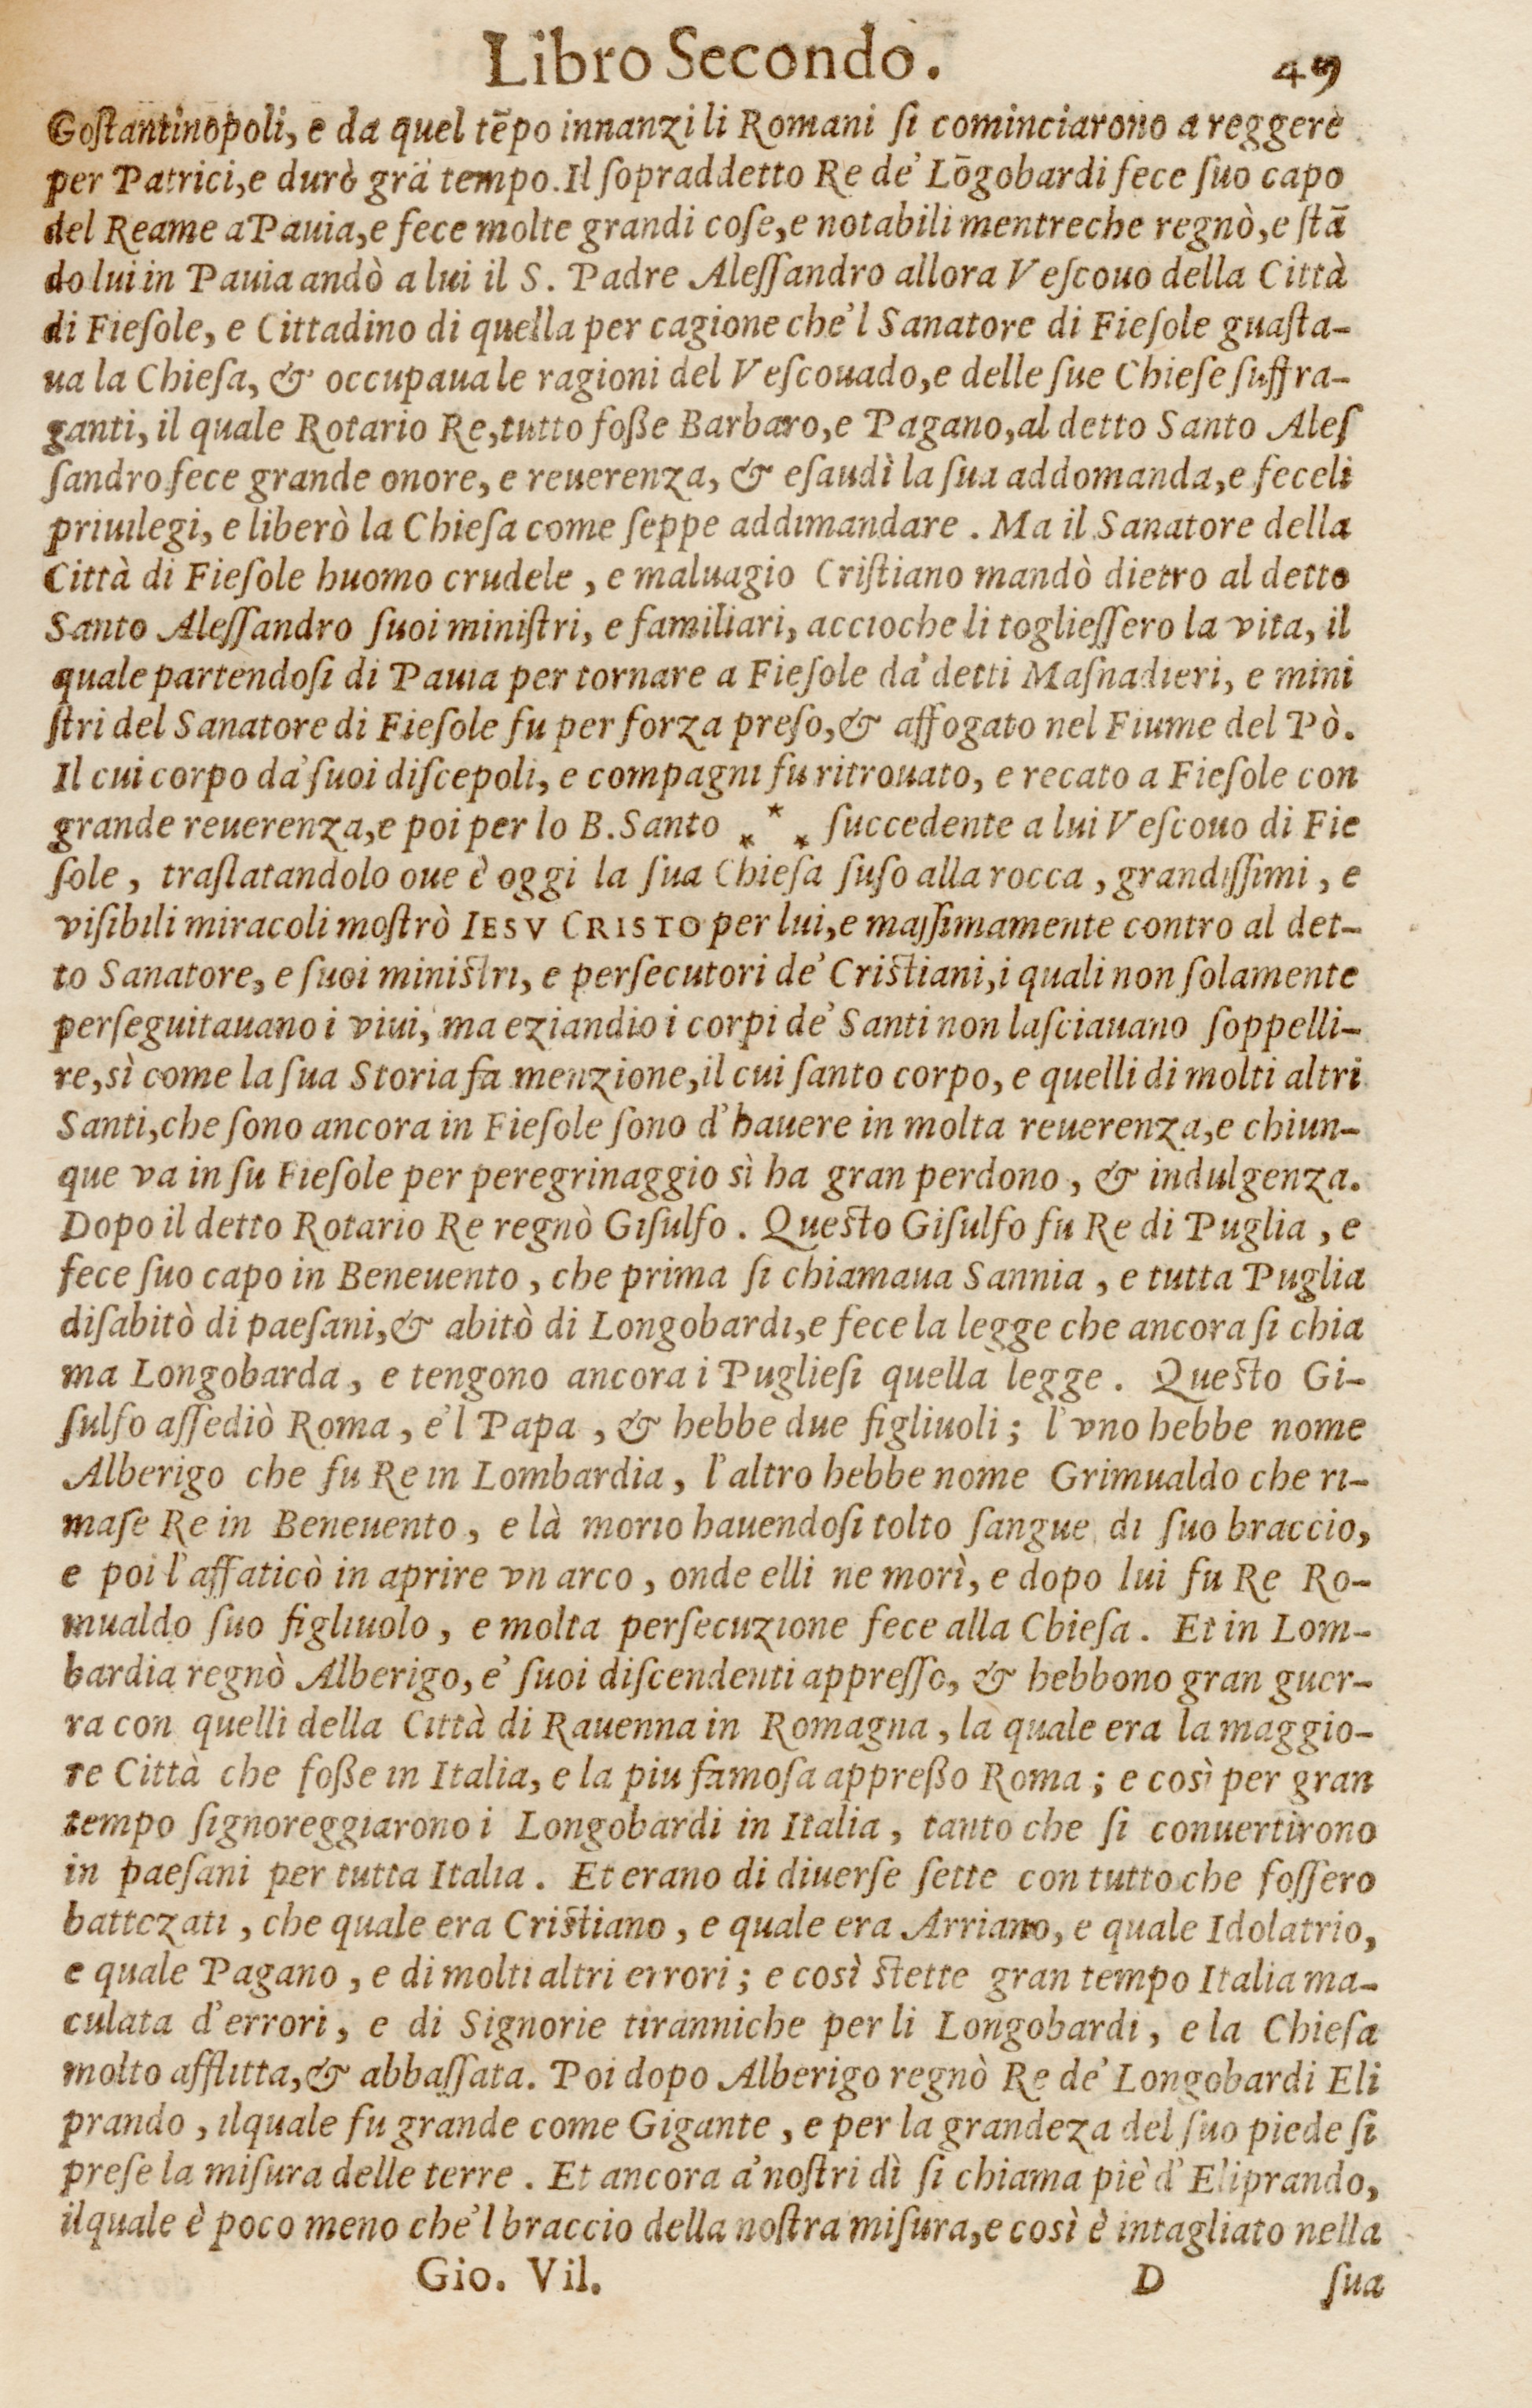 Libro Secondo. 49
Gostantinopoli, e da quel tẽpo innanzi li Romani si cominciarono a reggere
per Patrici, e durò grã tempo. Il sopraddetto Re de' Lõgobardi fece suo capo
del Reame a Pauia, e fece molte grandi cose, e notabili mentreche regnò, e stã
do lui in Pauia andò a lui il S. Padre Alessandro allora Vescouo della Città
di Fiesole, e Cittadino di quella per cagione che'l Sanatore di Fiesole guasta-
ua la Chiesa, & occupaua le ragioni del Vescouado, e delle sue Chiese suffra-
ganti, il quale Rotario Re, tutto foße Barbaro, e Pagano, al detto Santo Ales
sandro fece grande onore, e reuerenza, & esaudì la sua addomanda, e feceli
priuilegi, e liberò la Chiesa come seppe addimandare. Ma il Sanatore della
Città di Fiesole huomo crudele, e maluagio Cristiano mandò dietro al detto
Santo Alessandro suoi ministri, e familiari, accioche li togliessero la vita, il
quale partendosi di Pauia per tornare a Fiesole da' detti Masnadieri, e mini
stri del Sanatore di Fiesole fu per forza preso, & affogato nel Fiume del Pò.
Il cui corpo da' suoi discepoli, e compagni fu ritrouato, e recato a Fiesole con
grande reuerenza, e poi per lo B. Santo *** succedente a lui Vescouo di Fie
sole, traslatandolo oue è oggi la sua Chiesa suso alla rocca, grandissimi, e
visibili miracoli mostrò IESV CRISTO per lui, e massimamente contro al det-
to Sanatore, e suoi ministri, e persecutori de' Cristiani, i quali non solamente
perseguitauano i viui, ma eziandio i corpi de' Santi non lasciauano soppelli-
re, sì come la sua Storia fa menzione, il cui santo corpo, e quelli di molti altri
Santi, che sono ancora in Fiesole sono d' hauere in molta reuerenza, e chiun-
que va in su Fiesole per peregrinaggio sì ha gran perdono, & indulgenza.
Dopo il detto Rotario Re regnò Gisulfo. Questo Gisulfo fu Re di Puglia, e
fece suo capo in Beneuento, che prima si chiamaua Sannia, e tutta Puglia
disabitò di paesani, & abitò di Longobardi, e fece la legge che ancora si chia
ma Longobarda, e tengono ancora i Pugliesi quella legge. Questo Gi-
sulfo assediò Roma, e'l Papa, & hebbe due figliuoli; l'vno hebbe nome
Alberigo che fu Re in Lombardia, l'altro hebbe nome Grimualdo che ri-
mase Re in Beneuento, e là morio hauendosi tolto sangue di suo braccio,
e poi l'affaticò in aprire vn arco, onde elli ne morì, e dopo lui fu Re Ro-
mualdo suo figliuolo, e molta persecuzione fece alla Chiesa. Et in Lom-
bardia regnò Alberigo, e' suoi discendenti appresso, & hebbono gran guer-
ra con quelli della Città di Rauenna in Romagna, la quale era la maggio-
re Città che foße in Italia, e la piu famosa appreßo Roma; e così per gran
tempo signoreggiarono i Longobardi in Italia, tanto che si conuertirono
in paesani per tutta Italia. Et erano di diuerse sette con tutto che fossero
battezati, che quale era Cristiano, e quale era Arriano, e quale Idolatrio,
e quale Pagano, e di molti altri errori; e così stette gran tempo Italia ma-
culata d'errori, e di Signorie tiranniche per li Longobardi, e la Chiesa
molto afflitta, & abbassata. Poi dopo Alberigo regnò Re de' Longobardi Eli
prando, ilquale fu grande come Gigante, e per la grandeza del suo piede si
prese la misura delle terre. Et ancora a' nostri dì si chiama piè d' Eliprando,
ilquale è poco meno che'l braccio della nostra misura, e così è intagliato nella
Gio. Vil. D sua